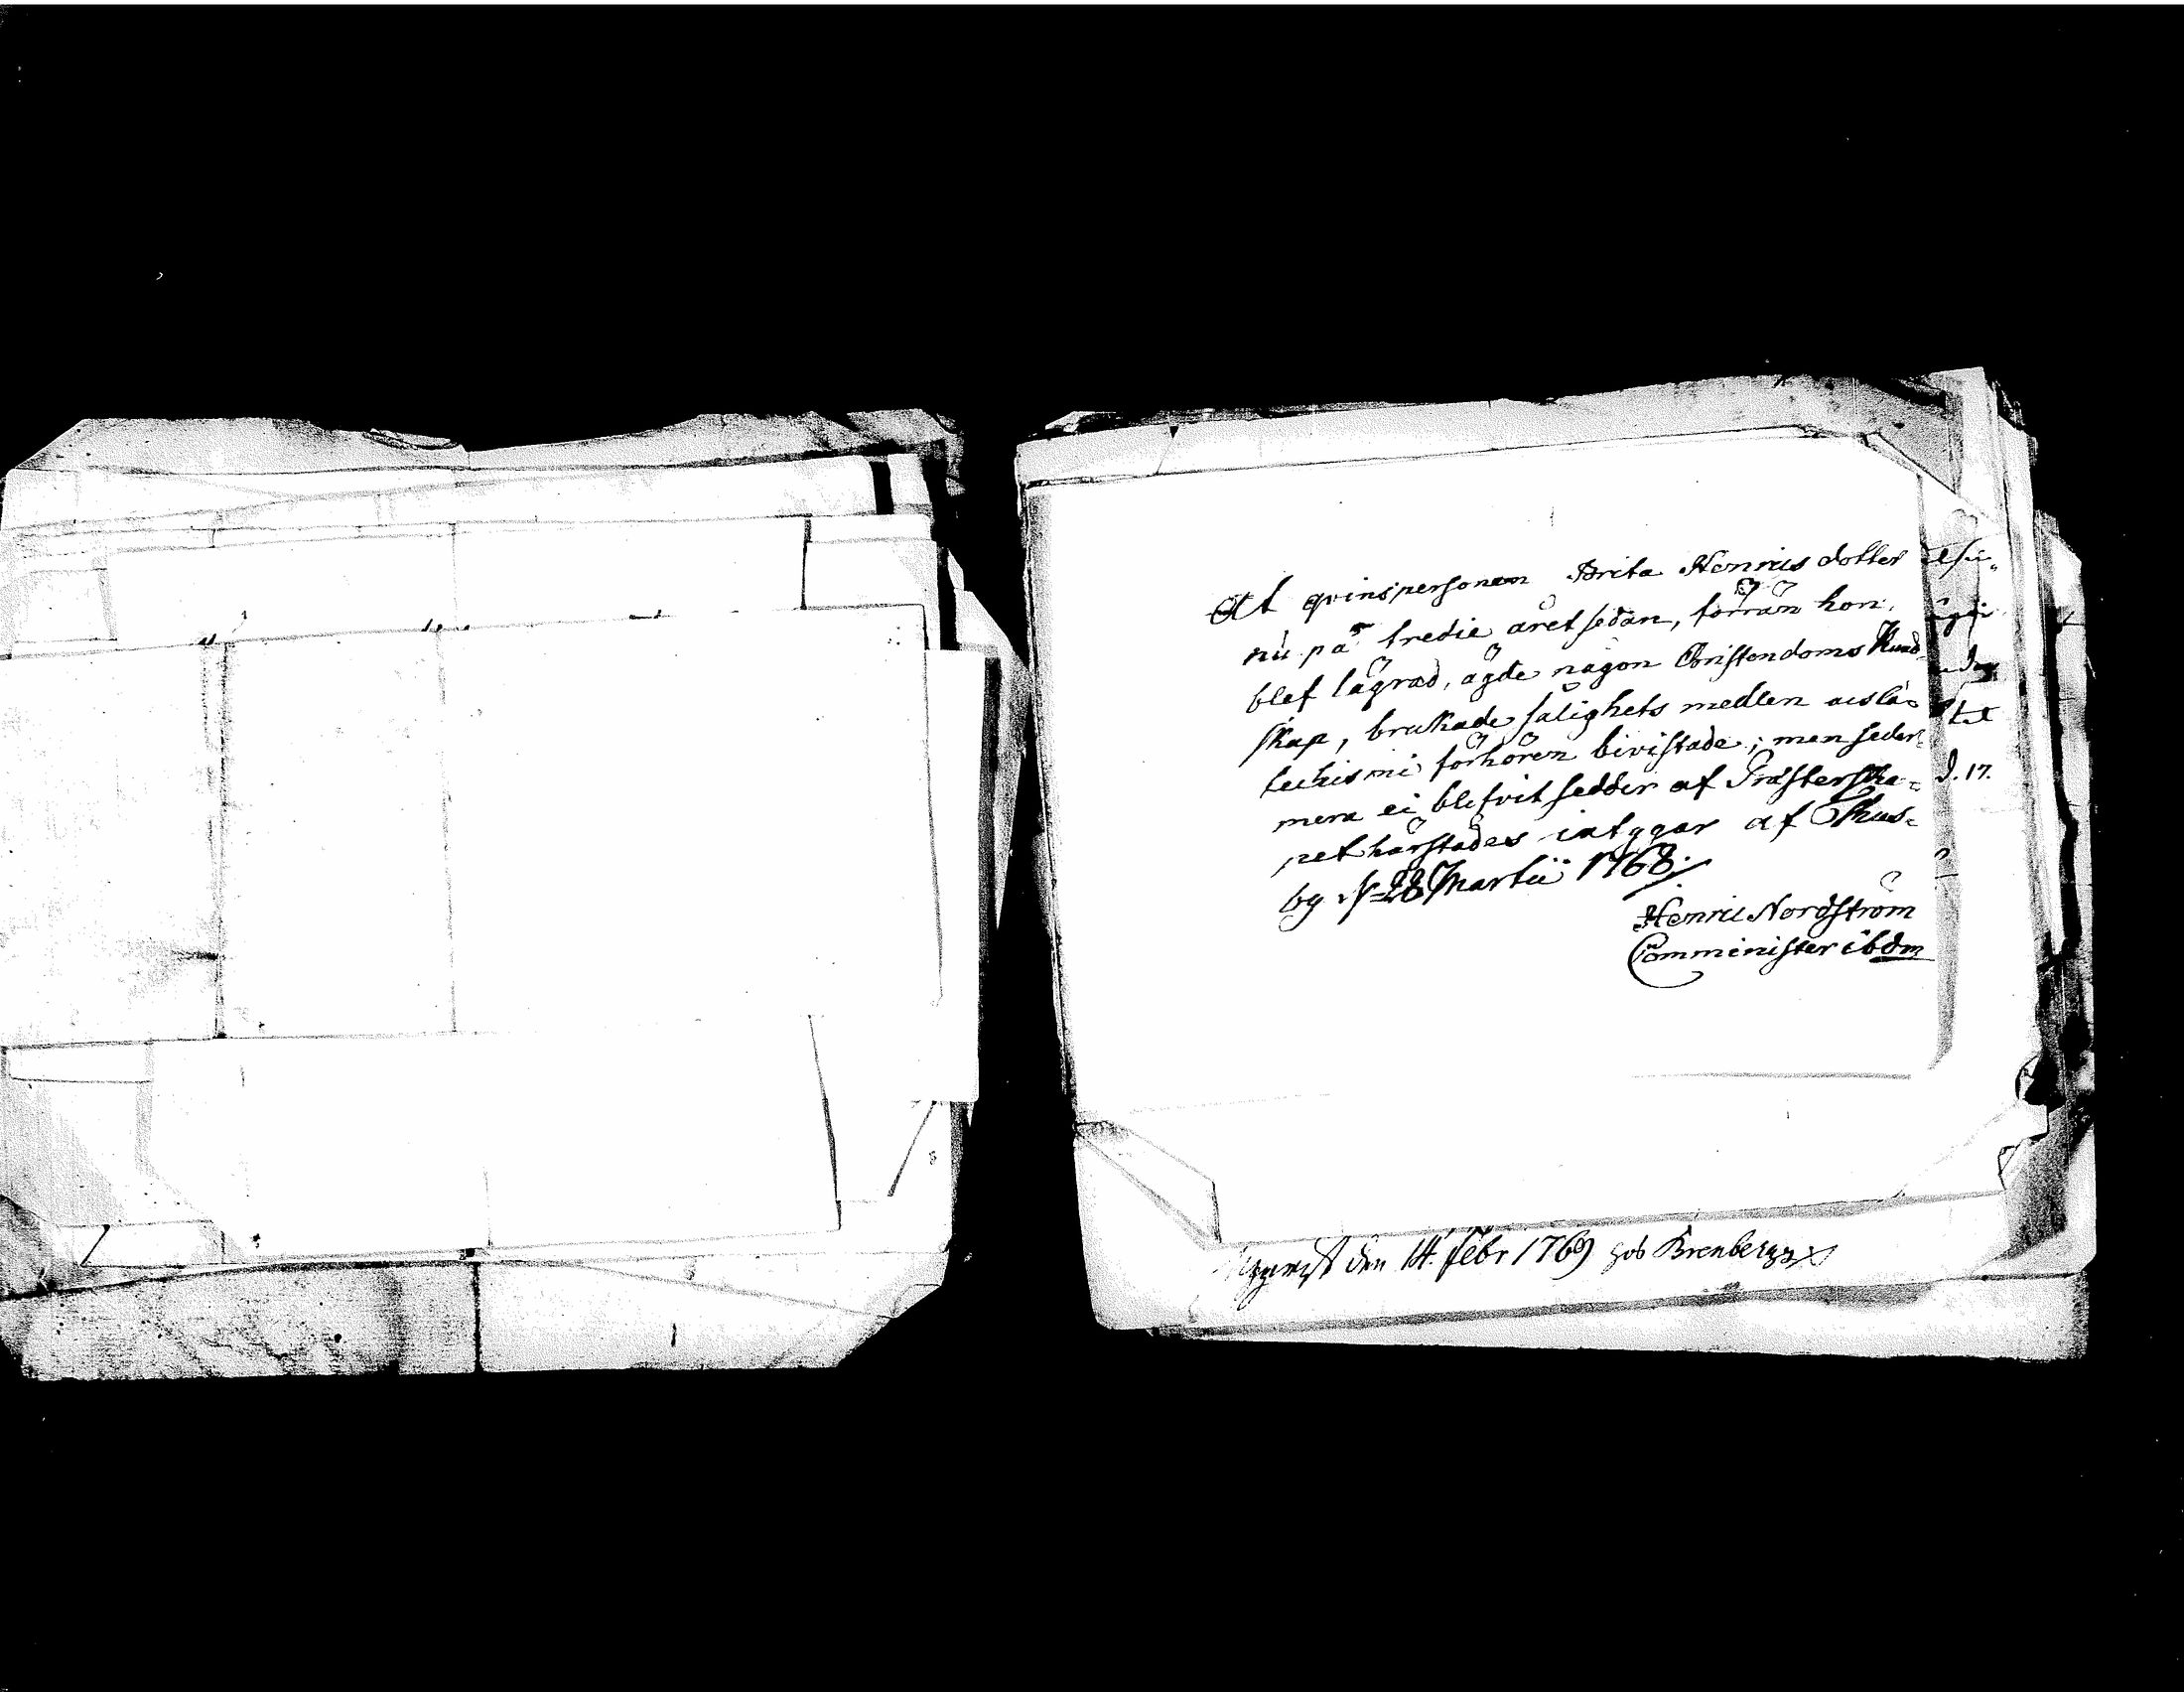 At qvinspersonen Brita Henrics dotter
nu på tredie åretsedan, förrän hon
blef lägrad, ägde någon Christendoms Kund-
skap, brukade salighets medlen och Ca-
techismi förhören bivistade; men seder-
mera ei blifvit sedder af Prästerska-
pet härstädes intygar af Thus-
by d. 28 Martii 1768.
Henric Nordström
Comminister ibdm
d. 17.
den 14. Febr 1769 Brenberg